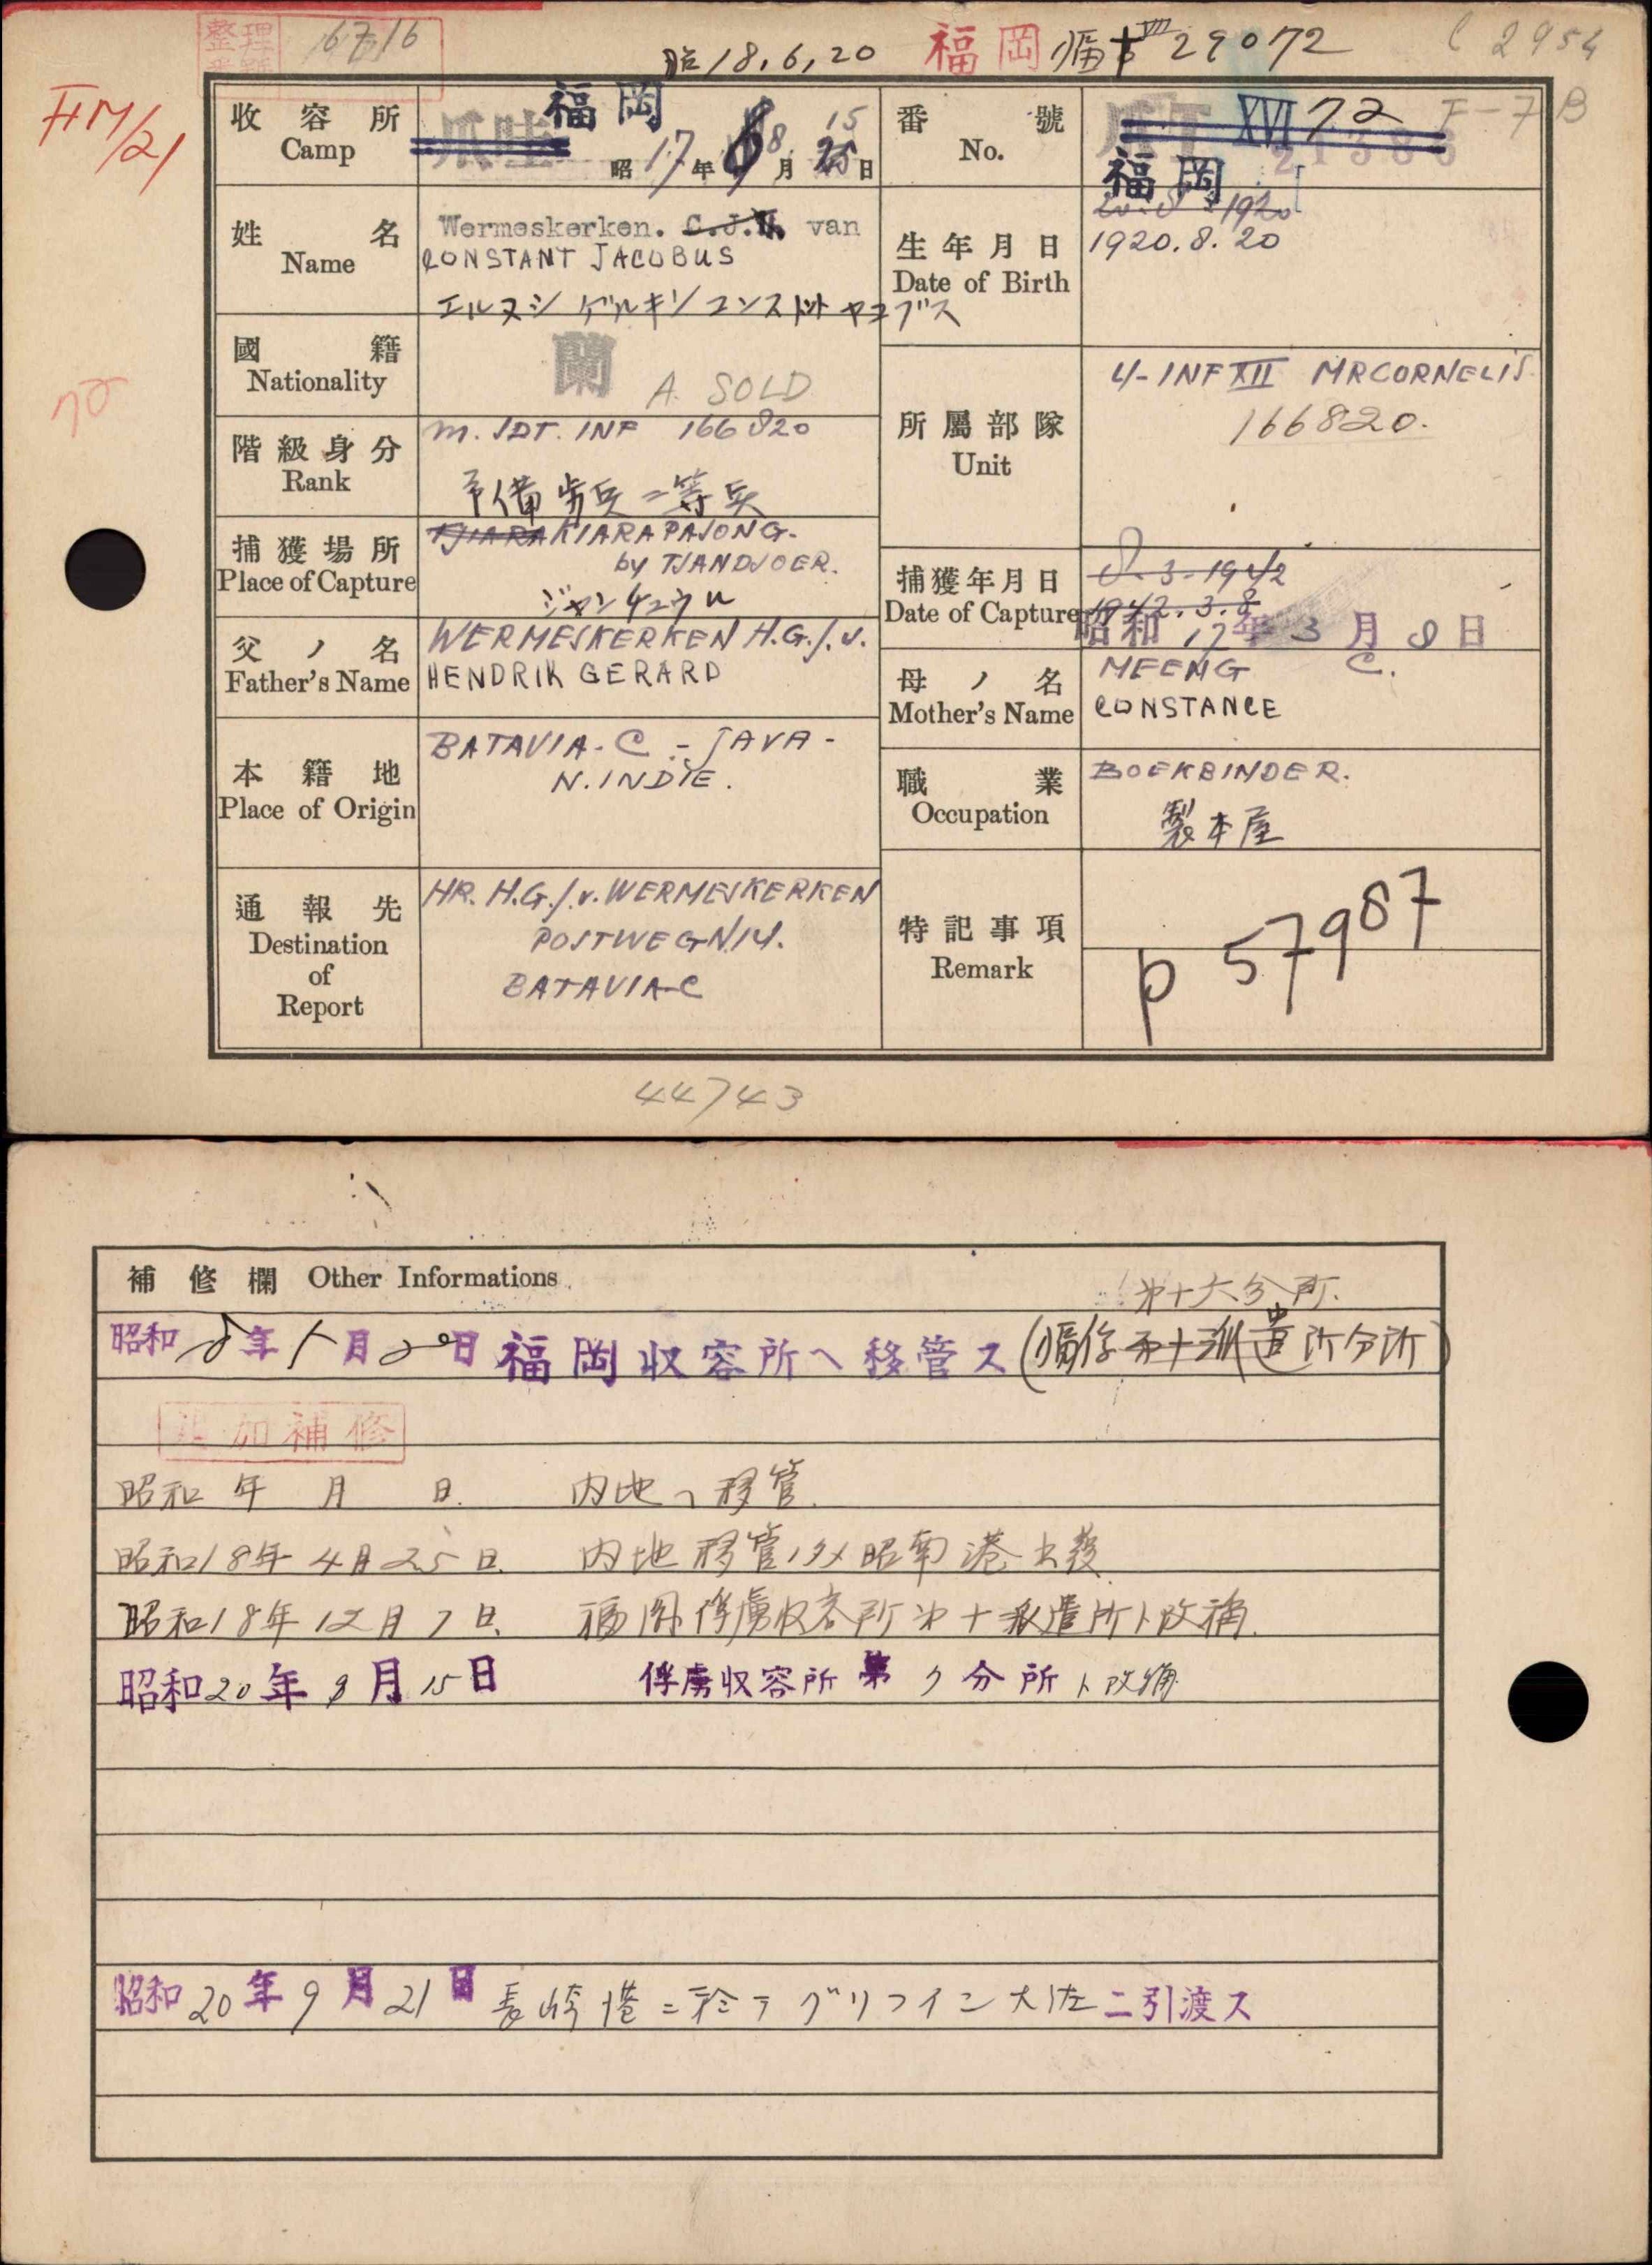 整理
16716
昭18.6.20 福岡 29072
C 2954
FM/21
收容所 Camp
瓜哇 福岡
昭17年8月15日
番號 No.
XVI 72
21386
F-7B
福岡
姓名 Name
Wermeskerken. C.J.H. van
CONSTANT JACOBUS
生年月日 Date of Birth
20.8.1920
1920.8.20
國籍 Nationality
蘭
A. SOLD
階級身分 Rank
M. SDT. INF 166820
予備歩兵二等兵
所屬部隊 Unit
4-INF XII MRCORNELIS.
166820.
捕獲場所 Place of Capture
TJIARA KIARAPAJONG.
by TJANDJOER.
捕獲年月日 Date of Capture
8-3-1942
1942.3.8
昭和17年3月8日
父ノ名 Father's Name
WERMESKERKEN H.G.J.v.
HENDRIK GERARD
母ノ名 Mother's Name
MEENG C.
CONSTANCE
本籍地 Place of Origin
BATAVIA-C - JAVA-
N.INDIE.
職業 Occupation
BOEKBINDER.
製本屋
通報先 Destination of Report
HR. H.G.J.v.WERMESKERKEN
POSTWEG N14.
BATAVIA-C
特記事項 Remark
p 57987
44743
補修欄 Other Informations
第十六分所.
昭和18年5月20日 福岡収容所へ移管ス
追加補修
昭和 年 月 日. 内地へ移管.
昭和18年4月25日. 内地移管ノタメ昭南港出発
昭和18年12月7日. 福岡俘虜収容所第十派遣所ト改称.
昭和20年8月15日 俘虜収容所第7分所ト改称
昭和20年9月21日 長崎港ニ於テグリフイン大佐ニ引渡ス